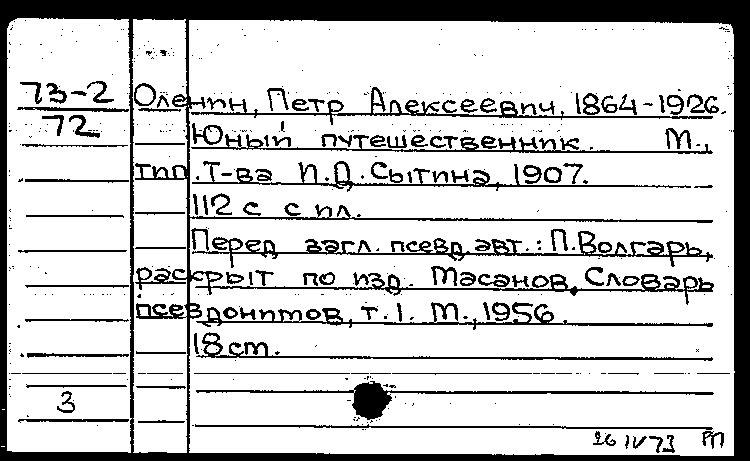 73-2 Оленин, Петр Алексеевич, 1864-1926.
72 Юный путешественник. М.,
тип. Т-ва И.Д. Сытина, 1907.
112 с с ил.
Перед загл. псевд. авт.: П.Волгарь,
раскрыт по изд. Масанов, Словарь
псевдонимов, т. 1. М., 1956.
18 cm.
3
26 IV 73